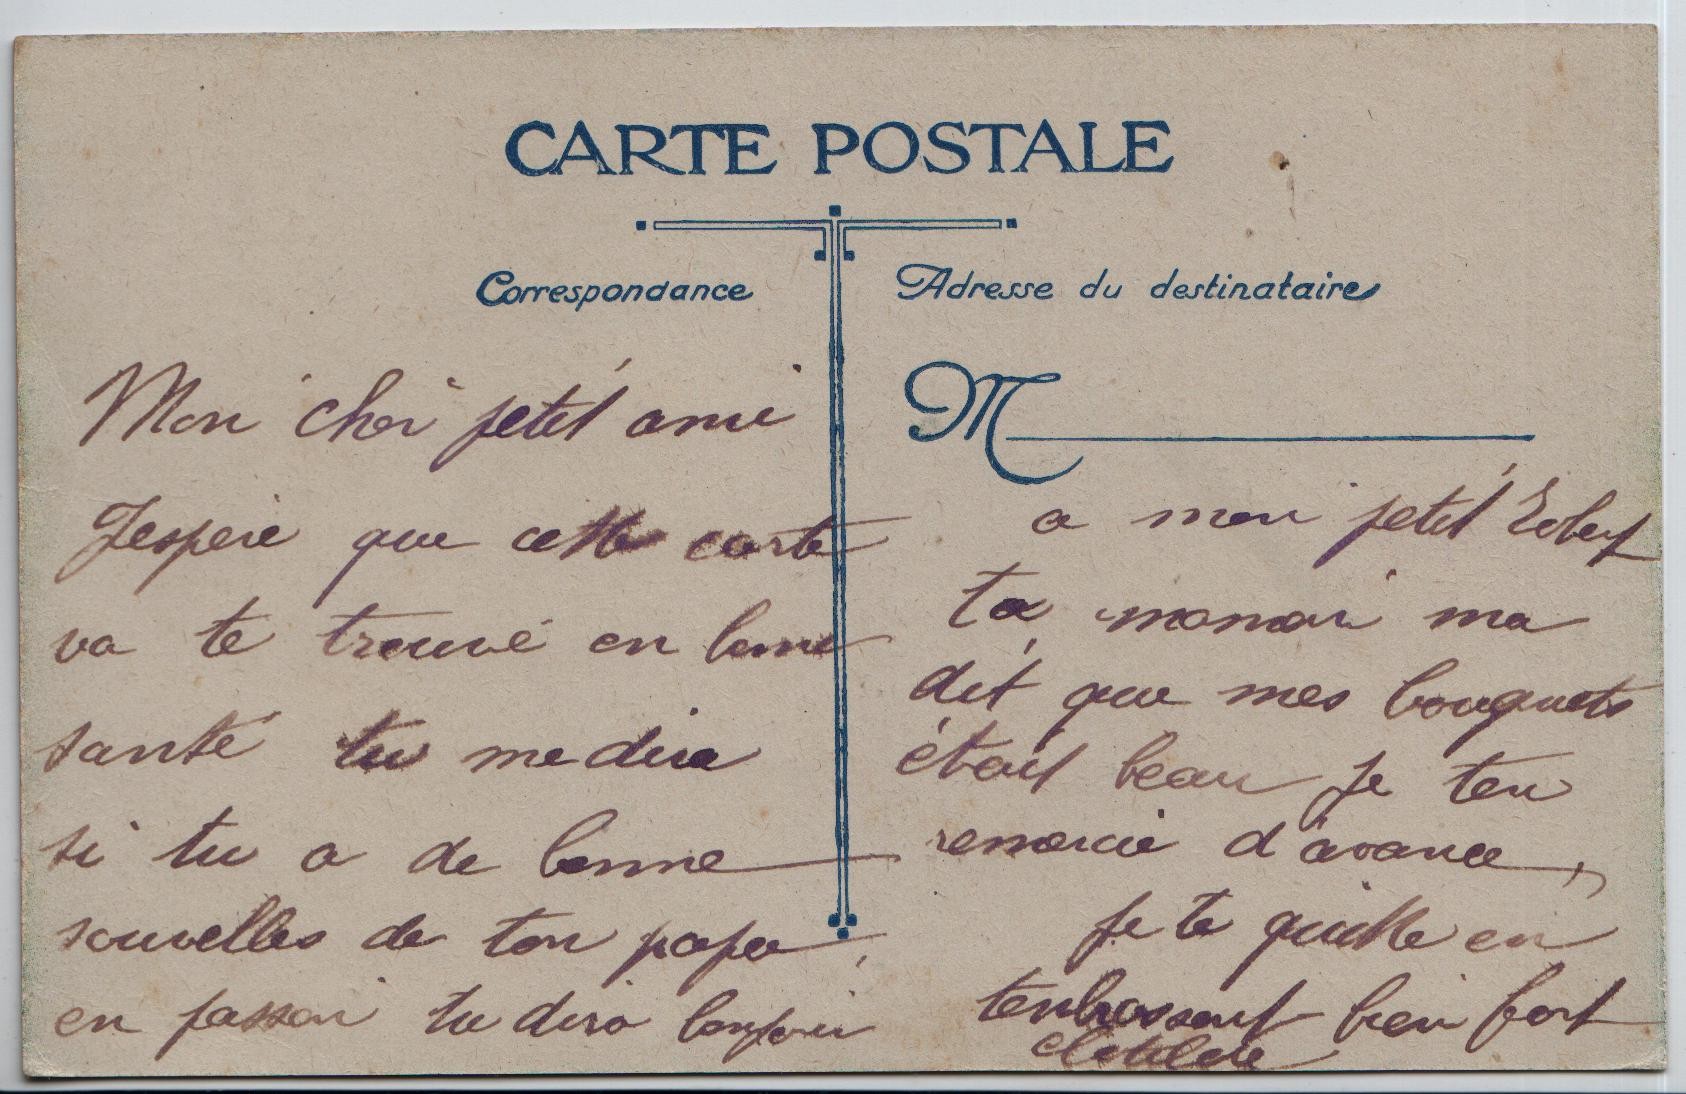 CARTE POSTALE
Correspondance
Adresse du destinataire
M
Mon cher petit ami
J'espere que cette carte
va te trouvé en bonne
santé tu me dira
si tu a de bonne
nouvelles de ton papa,
en passan tu dira bonjour
a mon petit Robert
ta maman ma
dit que mes bouquets
était beau je ten
remercie d'avance,
je te quitte en
tenbrassant bien fort
Clotilde